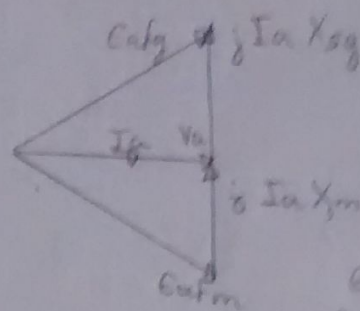 Eafg j Ia Xsg
Ia Va
j Ia Xsm
Eafm